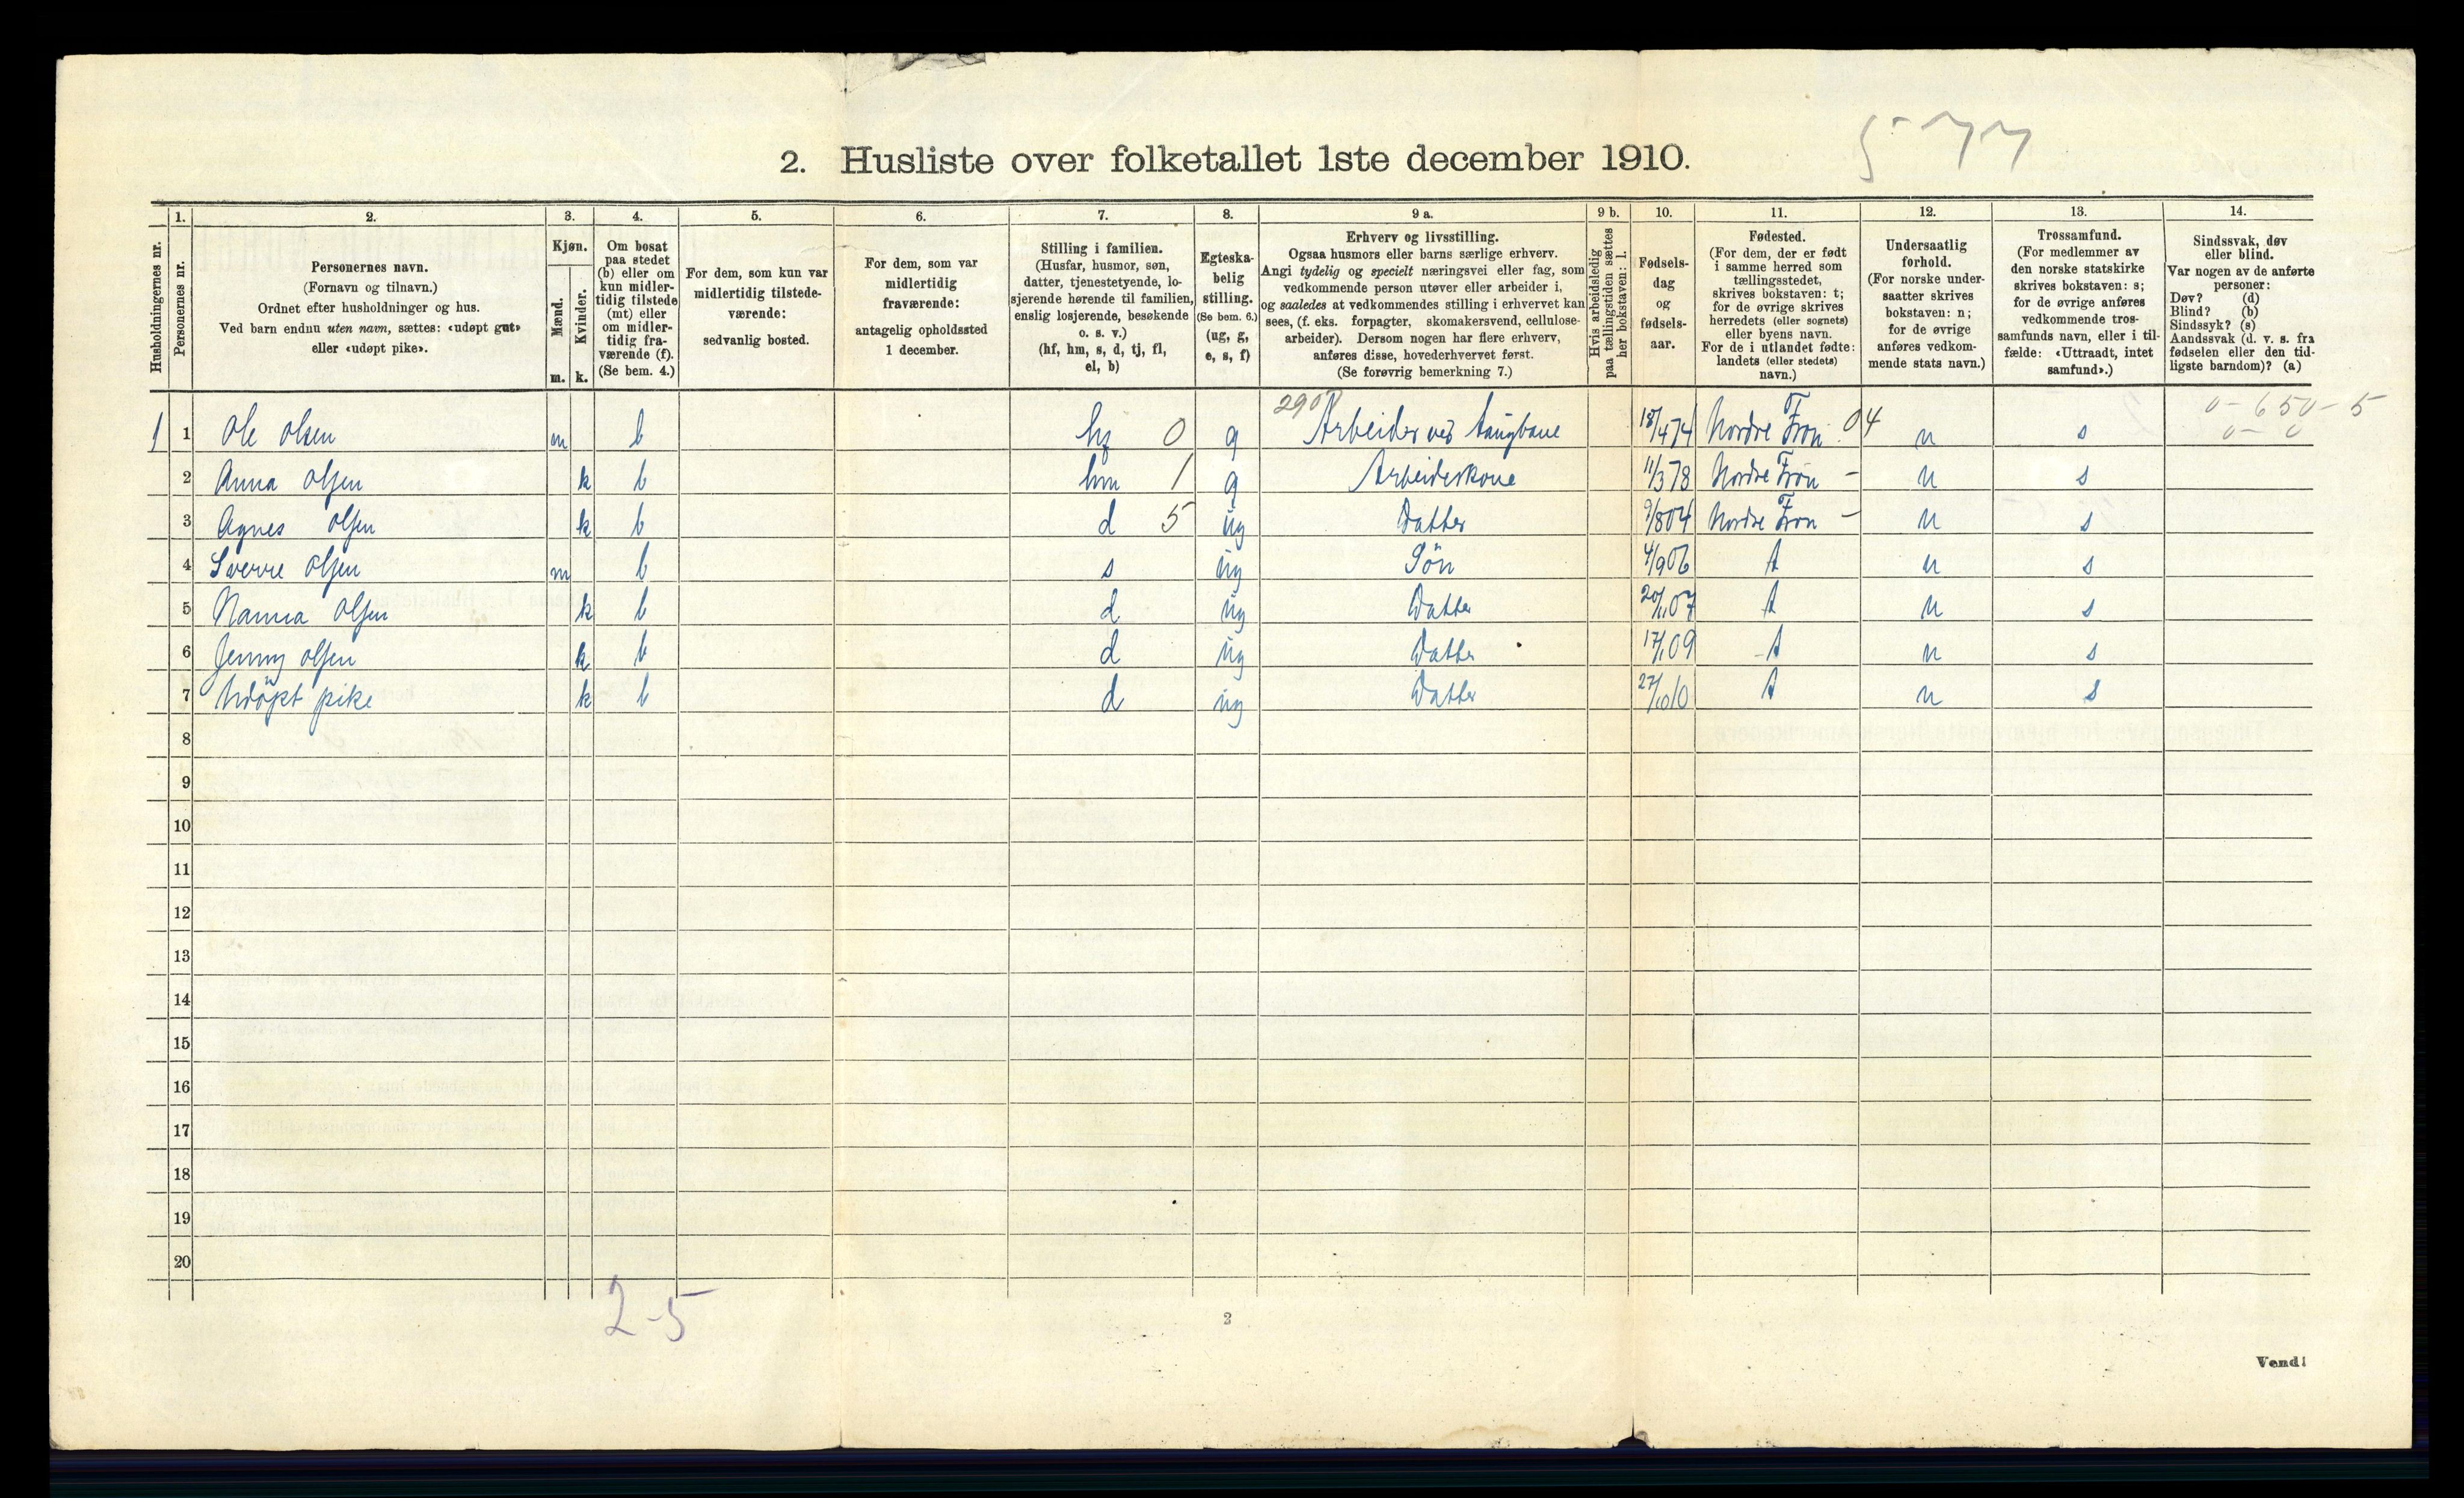 577
2. Husliste over folketallet 1ste december 1910.
Husholdningernes nr.
1.
Personernes nr.
2.
Personernes navn.
(Fornavn og tilnavn.)
Ordnet efter husholdninger og hus.
Ved barn endnu uten navn, sættes: «udøpt gut»
eller «udøpt pike».
3.
Kjøn.
Mænd.
Kvinder.
m. k.
4.
Om bosat
paa stedet
(b) eller om
kun midler-
tidig tilstede
(mt) eller
om midler-
tidig fra-
værende (f).
(Se bem. 4.)
5.
For dem, som kun var
midlertidig tilstede-
værende:
sedvanlig bosted.
6.
For dem, som var
midlertidig
fraværende:
antagelig opholdssted
1 december.
7.
Stilling i familien.
(Husfar, husmor, søn,
datter, tjenestetyende, lo-
sjerende hørende til familien,
enslig losjerende, besøkende
o. s. v.)
(hf, hm, s, d, tj, fl,
el, b)
8.
Egteska-
belig
stilling.
(Se bem. 6.)
(ug, g,
e, s, f)
9 a.
Erhverv og livsstilling.
Ogsaa husmors eller barns særlige erhverv.
Angi tydelig og specielt næringsvei eller fag, som
vedkommende person utøver eller arbeider i,
og saaledes at vedkommendes stilling i erhvervet kan
sees, (f. eks. forpagter, skomakersvend, cellulose-
arbeider). Dersom nogen har flere erhverv,
anføres disse, hovederhvervet først.
(Se forøvrig bemerkning 7.)
9 b.
Hvis arbeidsledig
paa tællingstiden sættes
her bokstaven: l.
10.
Fødsels-
dag
og
fødsels-
aar.
11.
Fødested.
(For dem, der er født
i samme herred som
tællingsstedet,
skrives bokstaven: t;
for de øvrige skrives
herredets (eller sognets)
eller byens navn.
For de i utlandet fødte:
landets (eller stedets)
navn.)
12.
Undersaatlig
forhold.
(For norske under-
saatter skrives
bokstaven: n;
for de øvrige
anføres vedkom-
mende stats navn.)
13.
Trossamfund.
(For medlemmer av
den norske statskirke
skrives bokstaven: s;
for de øvrige anføres
vedkommende tros-
samfunds navn, eller i til-
fælde: «Uttraadt, intet
samfund».)
14.
Sindssvak, døv
eller blind.
Var nogen av de anførte
personer:
Døv? (d)
Blind? (b)
Sindssyk? (s)
Aandssvak (d. v. s. fra
fødselen eller den tid-
ligste barndom)? (a)
0-650-5
0-0
2907
1 1 Ole Olsen m b hf 0 g Arbeider ved taugbane 18/4 74 Nordre Fron 04 n s
2 Anna Olsen k b hm 1 g Arbeiderskone 11/3 78 Nordre Fron - n s
3 Agnes Olsen k b d 5 ug Datter 9/8 04 Nordre Fron - n s
4 Sverre Olsen m b s ug Søn 4/9 06 t n s
5 Nanna Olsen k b d ug Datter 20/11 07 t n s
6 Jenny Olsen k b d ug Datter 17/1 09 t n s
7 Udöpt pike k b d ug Datter 27/10 10 t n s
8
9
10
11
12
13
14
15
16
17
18
19
20
2-5
2
Vend!